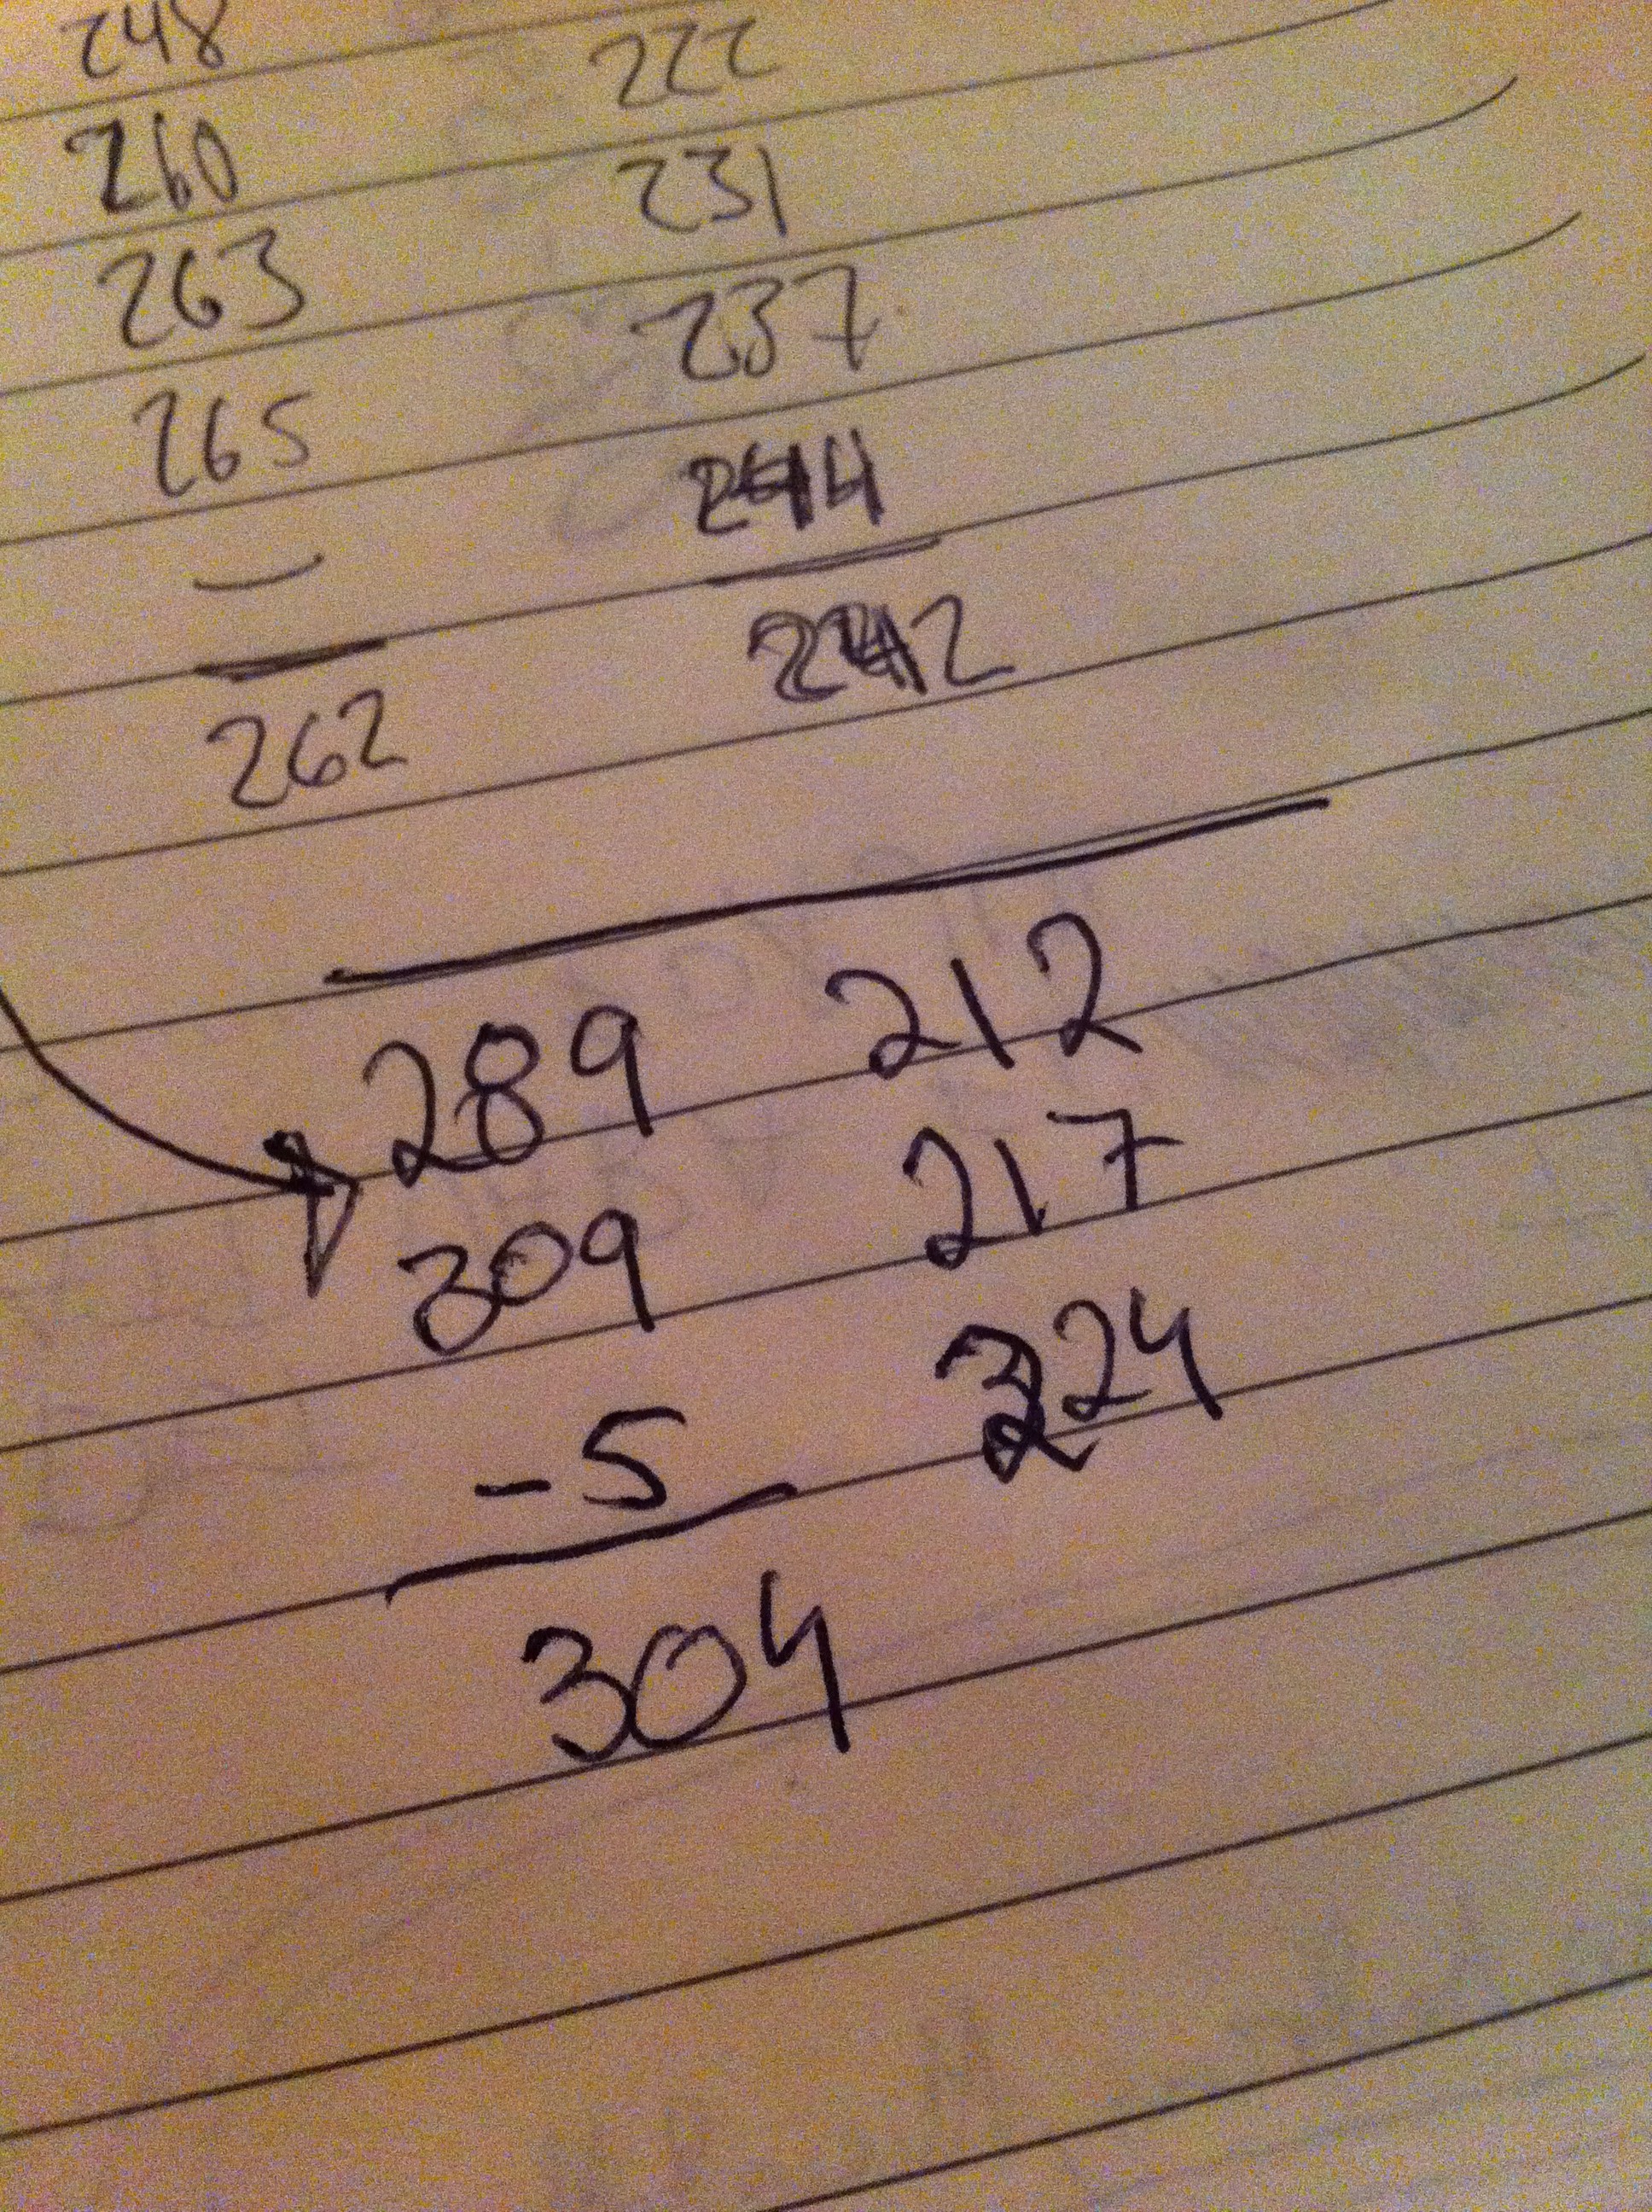 248 222
260 231
263 237
265 244
—
262 242
289 212
309 217
-5 224
304